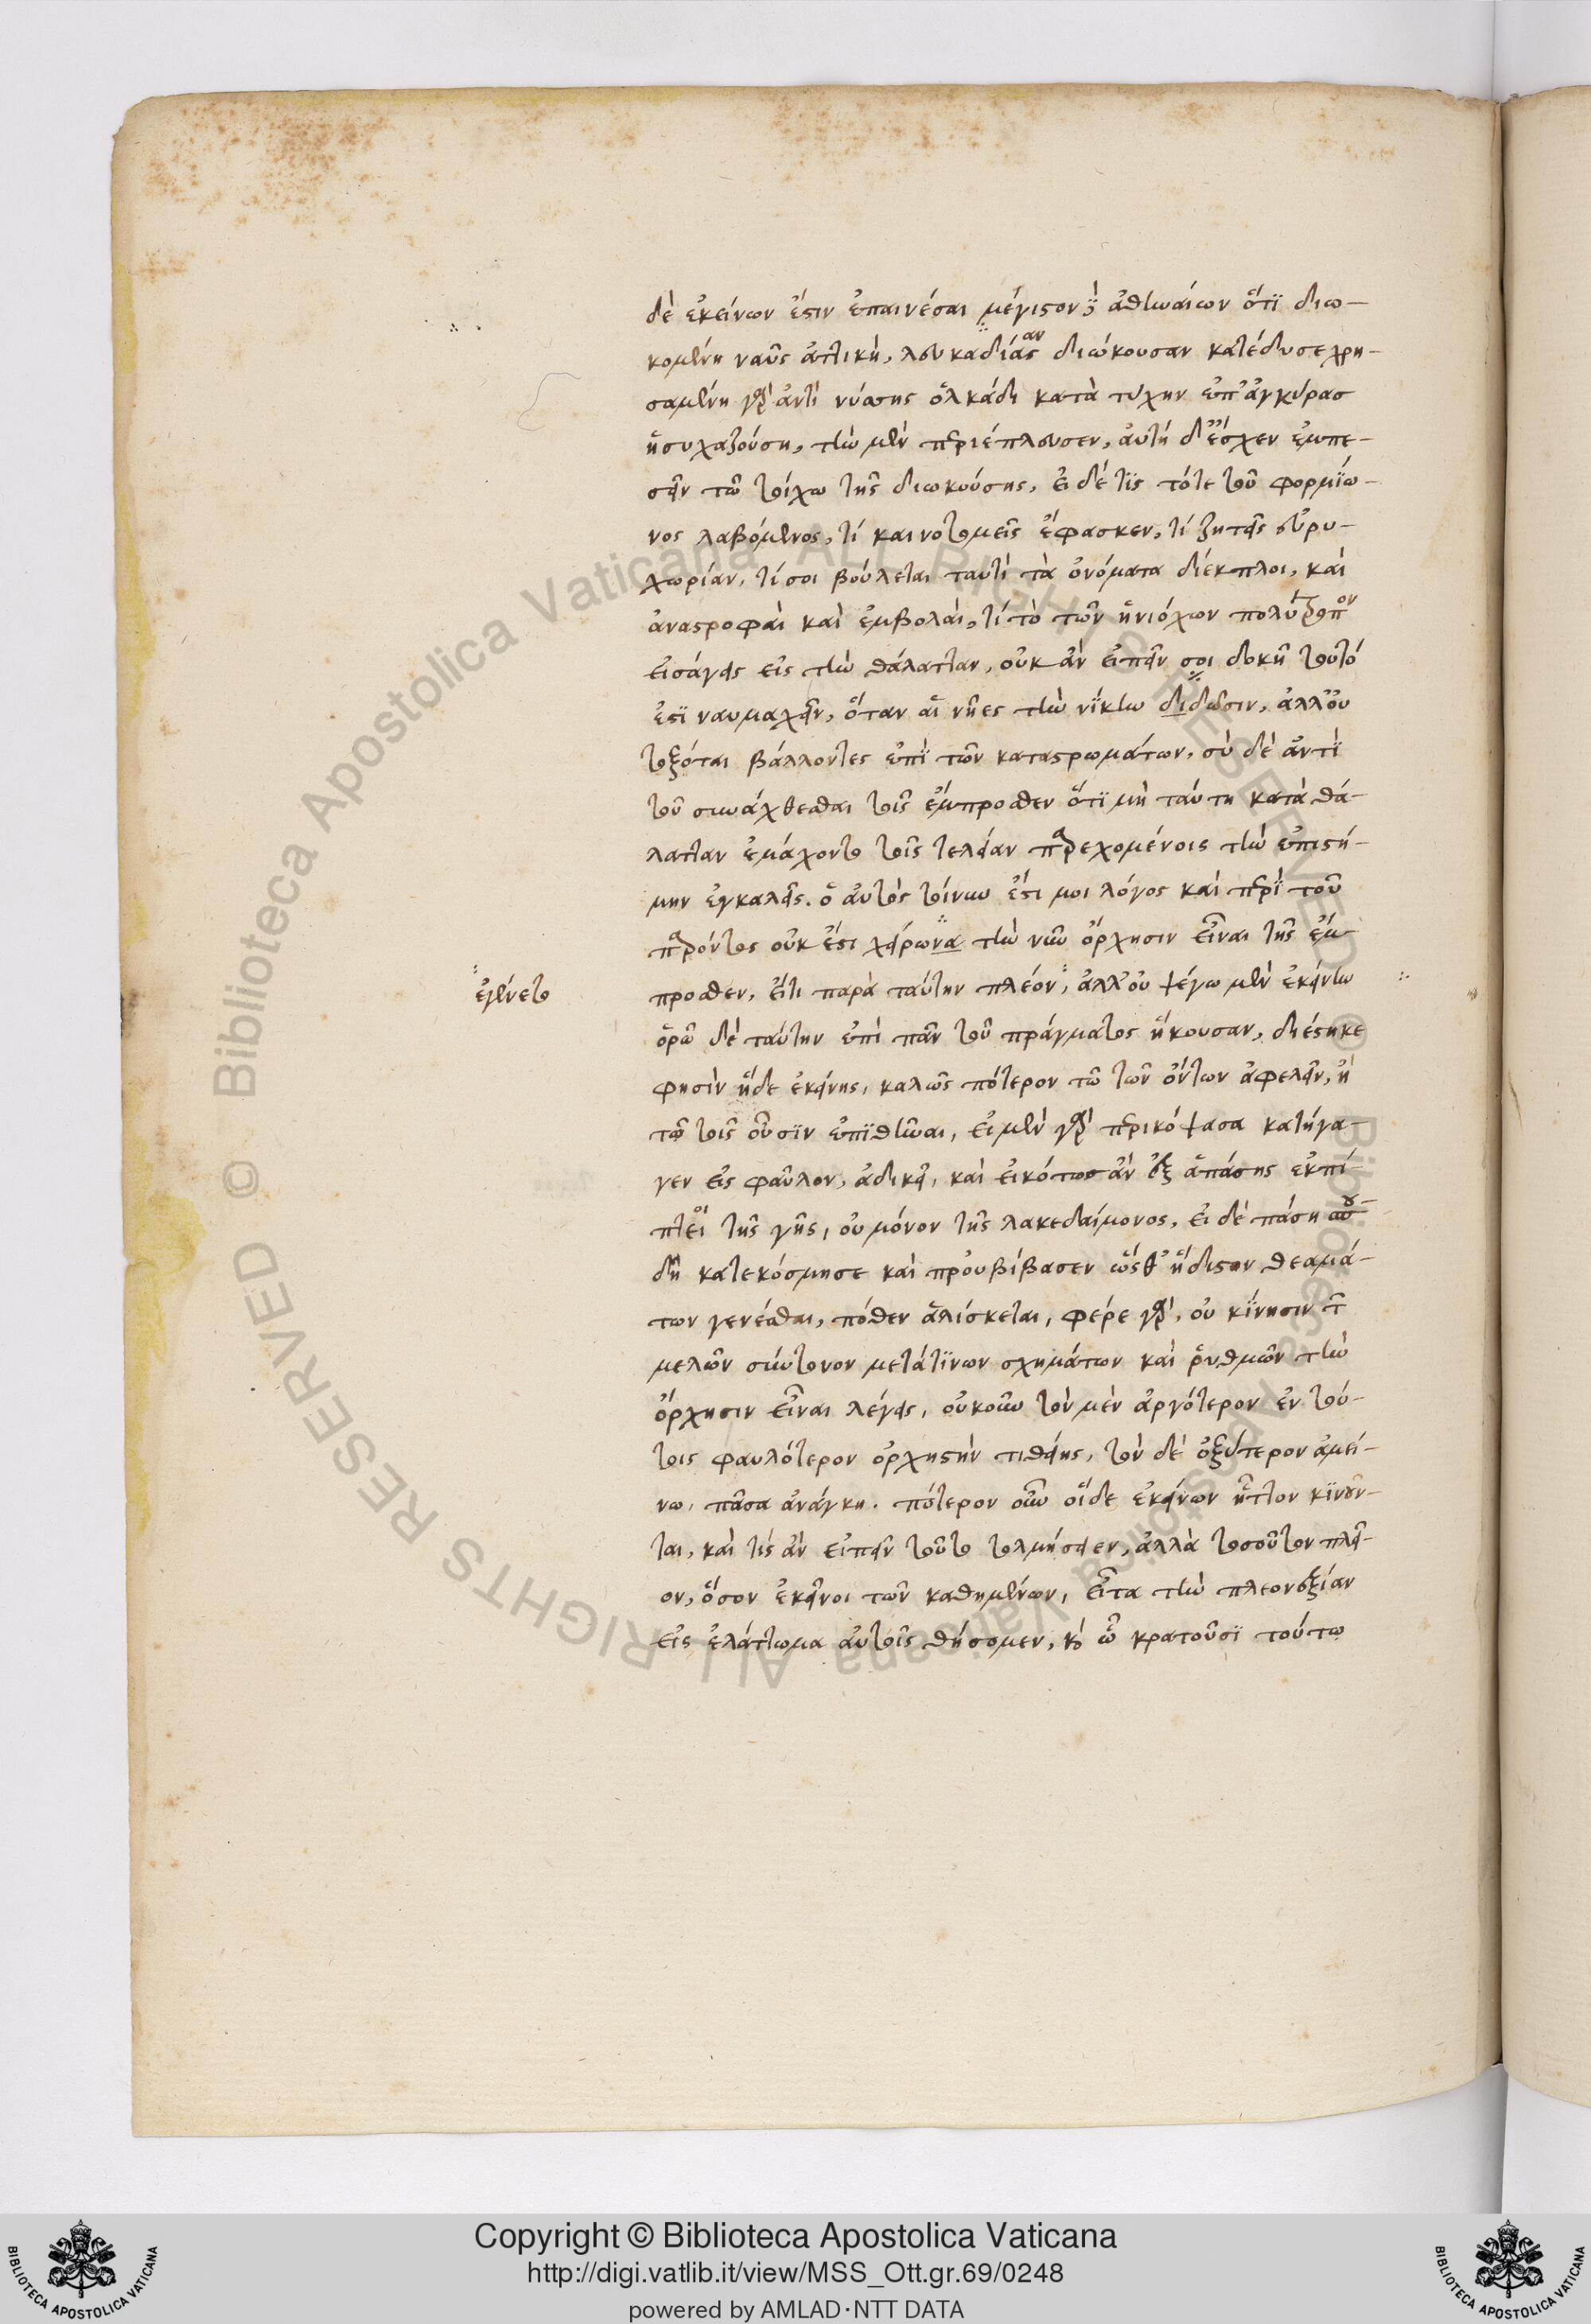 δὲ ἐκείνων ἔστιν ἐπαινέσαι μέγιστον ἀθηναίων ὅτι διω-
κομένη ναῦς ἀττικὴ, λευκαδίαν διώκουσαν κατέδυσε χρη-
σαμένη γὰρ ἀντὶ νύσσης ὁλκάδι κατὰ τύχην ἐπ' ἀγκύρας
ἡσυχαζούση, τὴν μὲν περιέπλευσεν, αὐτὴ δ' ἔσχεν ἐμπε-
σεῖν τῶ τοίχω τῆς διωκούσης, εἰ δέ τις τότε τοῦ φορμίω-
νος λαβόμενος, τί καινοτομεῖς ἔφασκεν, τί ζητεῖς εὐρυ-
χωρίαν, τί σοι βούλεται ταυτὶ τὰ ὀνόματα διέκπλοι, καὶ
ἀναστροφαὶ καὶ ἐμβολαὶ, τί τὸ τῶν ἡνιόχων πολύτροπον
εἰσάγεις εἰς τὴν θάλατταν, οὐκ ἂν εἰπεῖν σοι δοκῆ τουτό
ἐστι ναυμαχεῖν, ὅταν αἱ νῆες τὴν νίκην διδῶσιν, ἀλλ' οὐ
τοξόται βάλλοντες ἐπὶ τῶν καταστρωμάτων, σὺ δὲ ἀντὶ
τοῦ συνάχθεσθαι τοῖς ἔμπροσθεν ὅτι μὴ ταύτη κατὰ θά-
λατταν ἐμάχοντο τοῖς τελείαν παρεχομένοις τὴν ἐπιστή-
μην ἐγκαλεῖς. ὁ αὐτὸς τοίνυν ἔστι μοι λόγος καὶ περὶ τοῦ
παρόντος οὐκ ἔστι χείρωνα τὴν νῦν ὄρχησιν εἶναι τῆς ἔμ-
προσθεν, εἴ τι παρὰ ταύτην πλέον, ἀλλ' οὐ ψέγω μὲν ἐκείνην
ἐγένετο
ὁρῶ δὲ ταύτην ἐπὶ πᾶν τοῦ πράγματος ἥκουσαν, διέστηκε
φησὶν ἥδε ἐκείνης, καλῶς πότερον τῶ τῶν ὄντων ἀφελεῖν, ἢ
τῶ τοῖς οὖσιν ἐπιθεῖναι, εἰ μὲν γὰρ περικόψασα κατήγα-
γεν εἰς φαῦλον, ἀδικεῖ, καὶ εἰκότως ἂν ἐξ ἁπάσης ἐκπί-
πτει τῆς γῆς, οὐ μόνον τῆς λακεδαίμονος, εἰ δὲ πάση σπου-
δῆ κατεκόσμησε καὶ προὐβίβασεν ὥσθ' ἥδιστον θεαμά-
των γενέσθαι, πόθεν ἁλίσκεται, φέρε γὰρ, οὐ κίνησιν τῶν
μελῶν σύντονον μετά τινων σχημάτων καὶ ῥυθμῶν τὴν
ὄρχησιν εἶναι λέγεις, οὐκοῦν τὸν μὲν ἀργότερον ἐν τού-
τοις φαυλότερον ὀρχηστὴν τιθείης, τὸν δὲ ὀξύτερον ἀμεί-
νω, πᾶσα ἀνάγκη. πότερον οὖν οἵδε ἐκείνων ἧττον κινοῦν-
ται, καὶ τίς ἂν εἰπεῖν τοῦτο τολμήσειεν, ἀλλὰ τοσοῦτον πλεῖ-
ον, ὅσον ἐκεῖνοι τῶν καθημένων, εἶτα τὴν πλεονεξίαν
εἰς ἐλάττωμα αὐτοῖς θήσομεν, καὶ ὧ κρατοῦσι τούτω
Copyright © Biblioteca Apostolica Vaticana
http://digi.vatlib.it/view/MSS_Ott.gr.69/0248
powered by AMLAD·NTT DATA